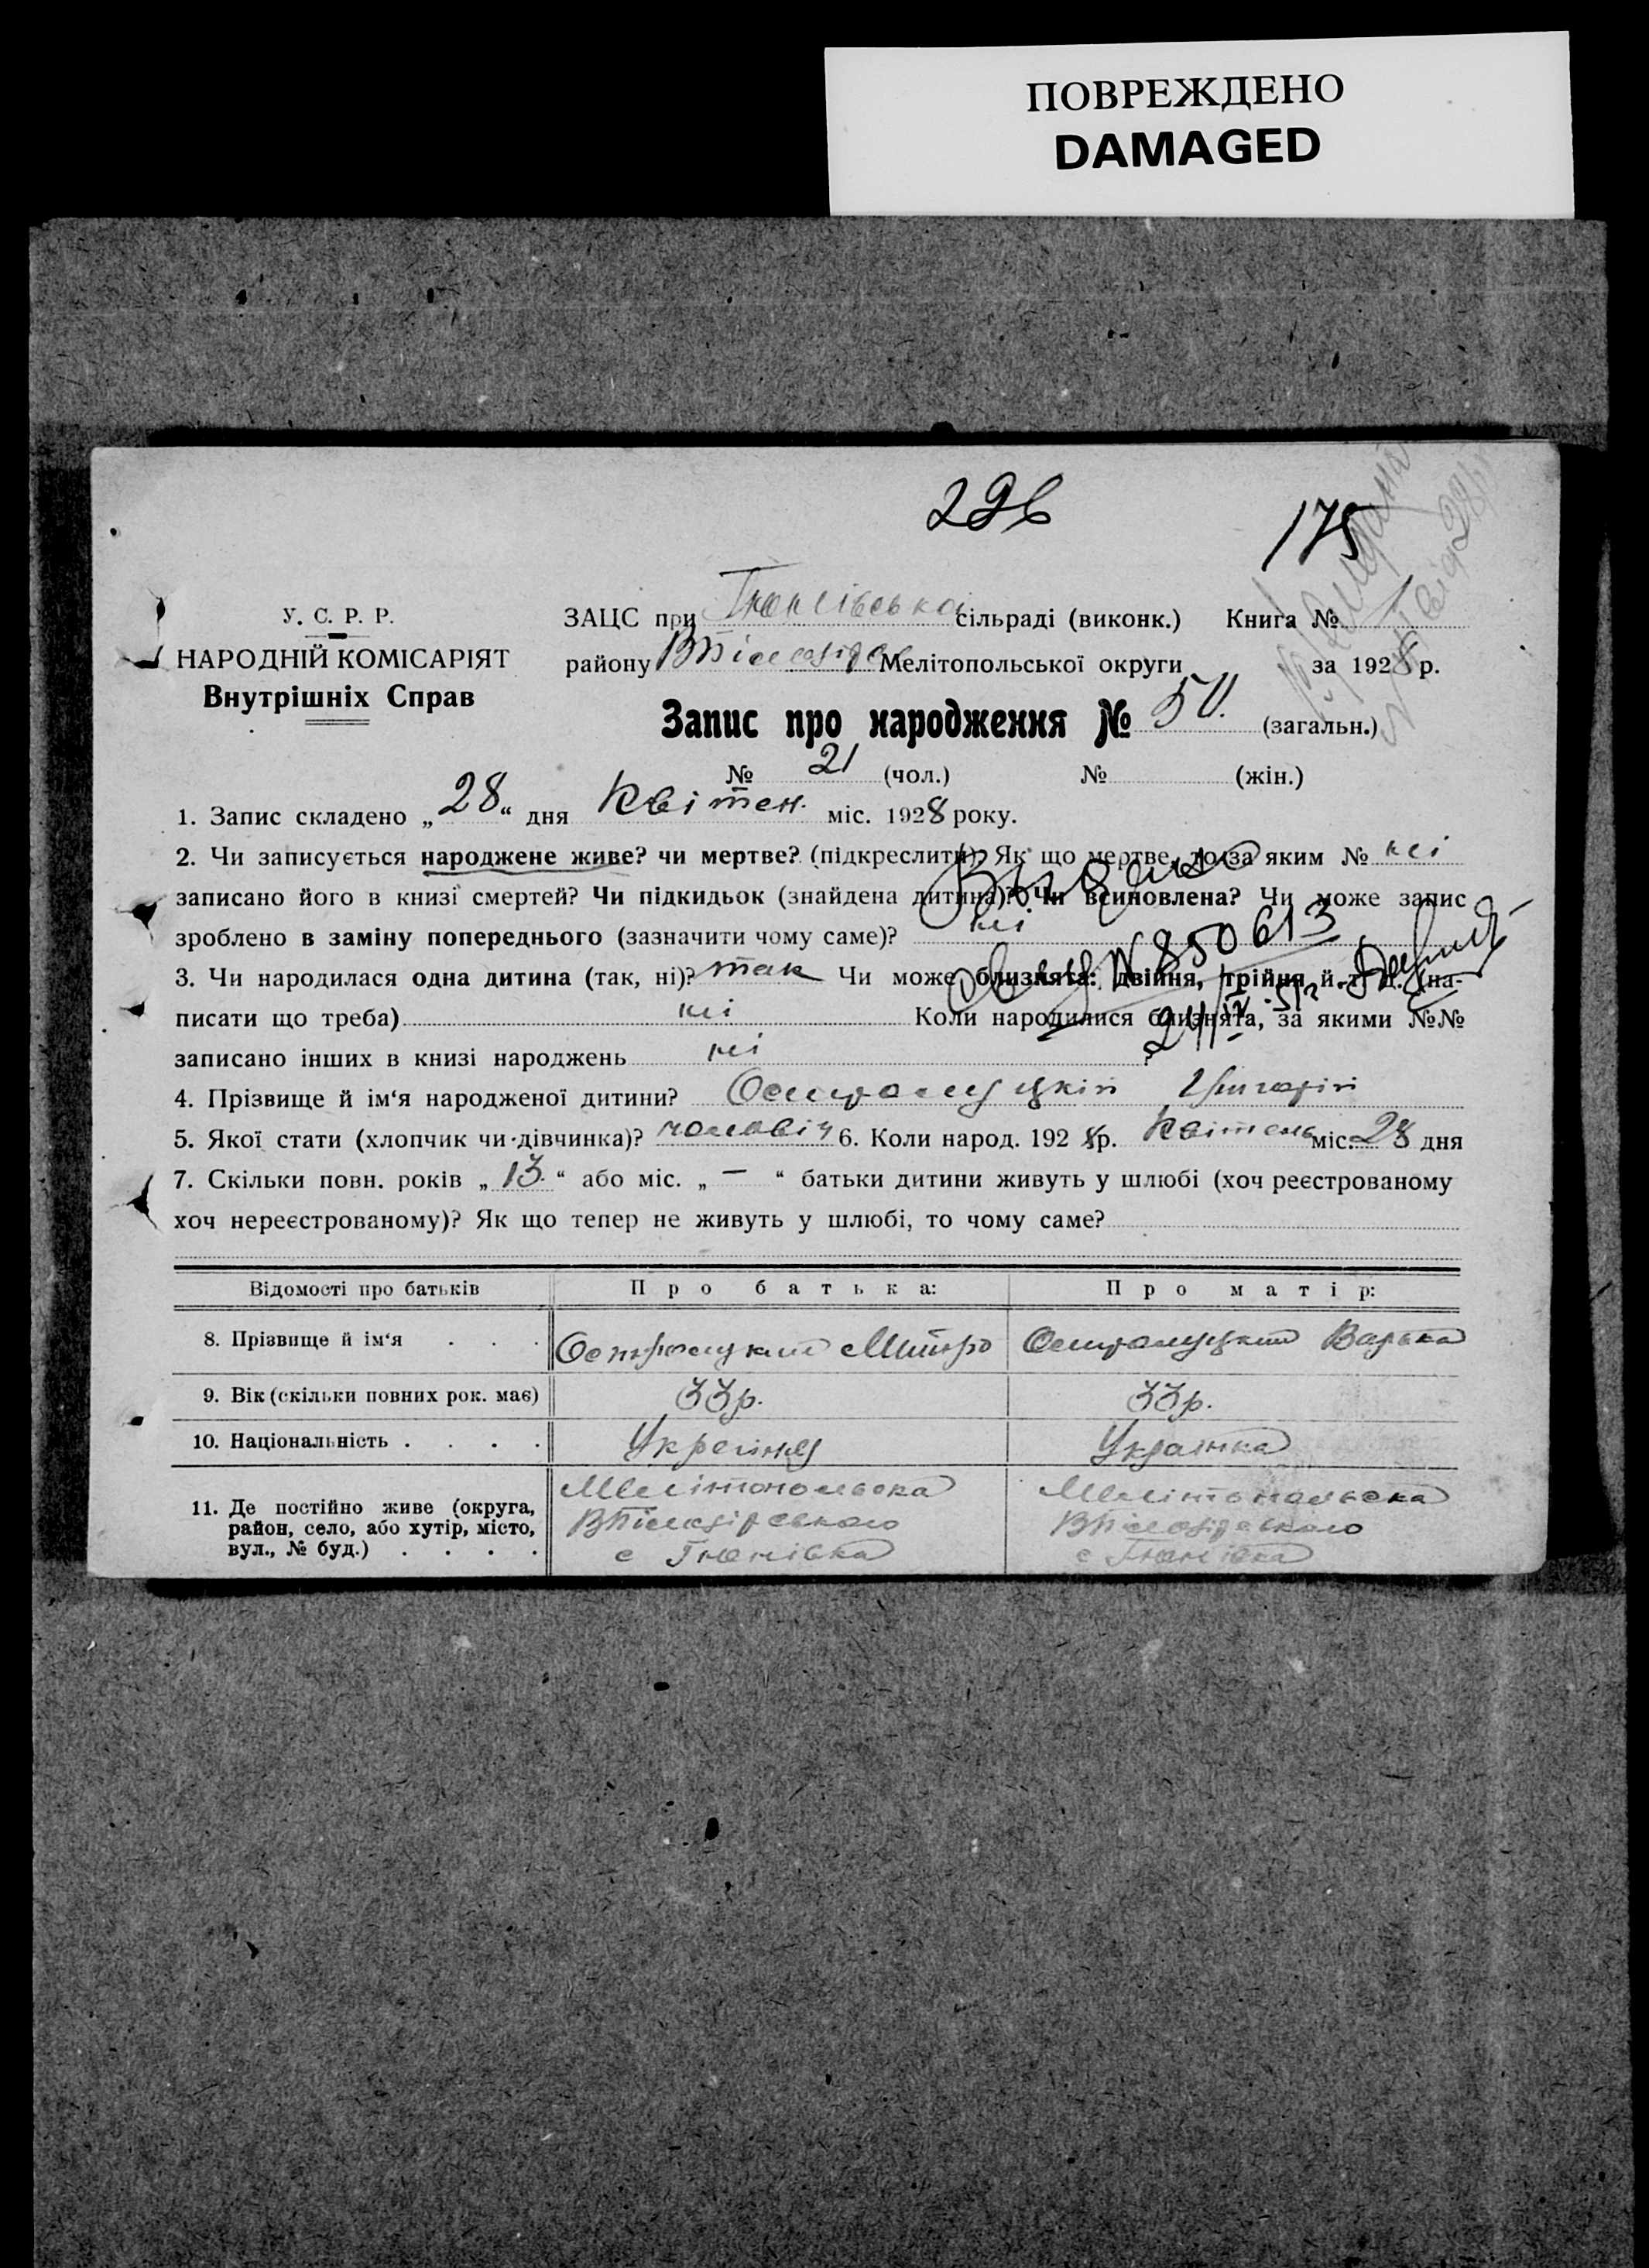 ПОВРЕЖДЕНО
DAMAGED
226
175
У. С. Р. Р.
НАРОДНІЙ КОМІСАРІЯТ
Внутрішніх Справ
ЗАЦС при сільраді (виконк.) Книга № 1
району Мелітопольської округи за 1928 р.
Запис про народження № 50. (загальн.)
№ 21 (чол.) № (жін.)
1. Запис складено „28“ дня Квітен. міс. 1928 року.
2. Чи записується народжене живе? чи мертве? (підкреслити). Як що мертве, то за яким № ні
записано його в книзі смертей? Чи підкидьок (знайдена дитина)? Чи всиновлена? Чи може запис
зроблено в заміну попереднього (зазначити чому саме)? ні
Выдано
№ 850613
24/IV-51г.
3. Чи народилася одна дитина (так, ні)? так Чи може близнята: двійня, трійня й т. д. (на-
писати що треба) ні Коли народилися близнята, за якими №№
записано інших в книзі народжень ні ?
4. Прізвище й ім‘я народженої дитини?
5. Якої стати (хлопчик чи дівчинка)? чоловіч 6. Коли народ. 1928р. Квітень міс. 28 дня
7. Скільки повн. років „13.“ або міс. „—“ батьки дитини живуть у шлюбі (хоч реєстрованому
хоч нереєстрованому)? Як що тепер не живуть у шлюбі, то чому саме?
Відомості про батьків Про батька: Про матір:
8. Прізвище й ім‘я Дмитро Варька
9. Вік (скільки повних рок. має) 33р. 33р.
10. Національність Українец Українка
11. Де постійно живе (округа, Мелітопольська Мелітопольська
район, село, або хутір, місто,
вул., № буд.) с с